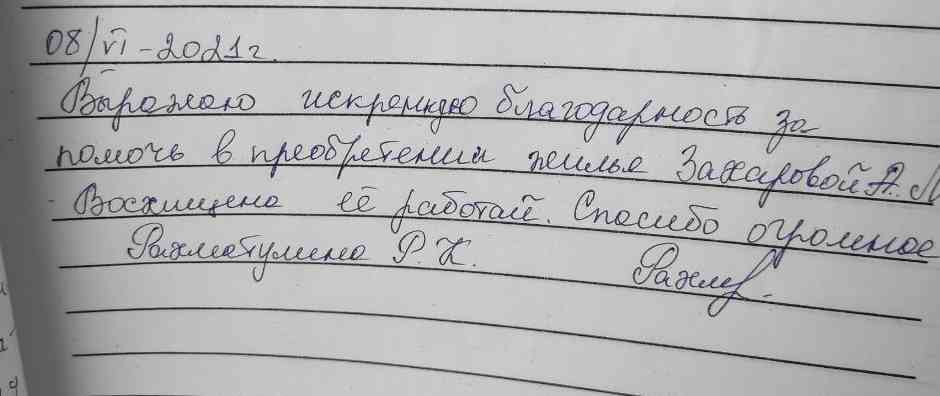 08/VI-2021г.
Выражаю искреннюю благодарность за
помочь в преобретении жилье Захаровой А. М
Восхищена её работай. Спасибо огромное
Рахматулина Р. К.